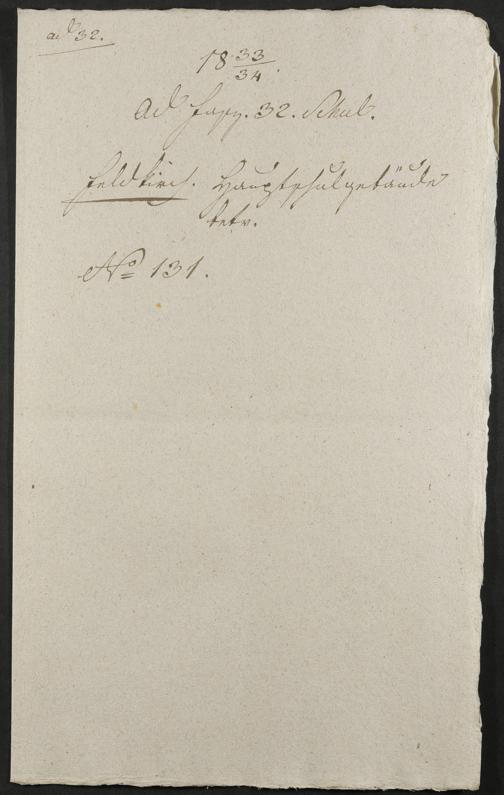 ad 32.
18 33/34.
Ad Fasz. 32. Schul.
Feldkirch. Hauptschulgebäude
betr.
No 131.